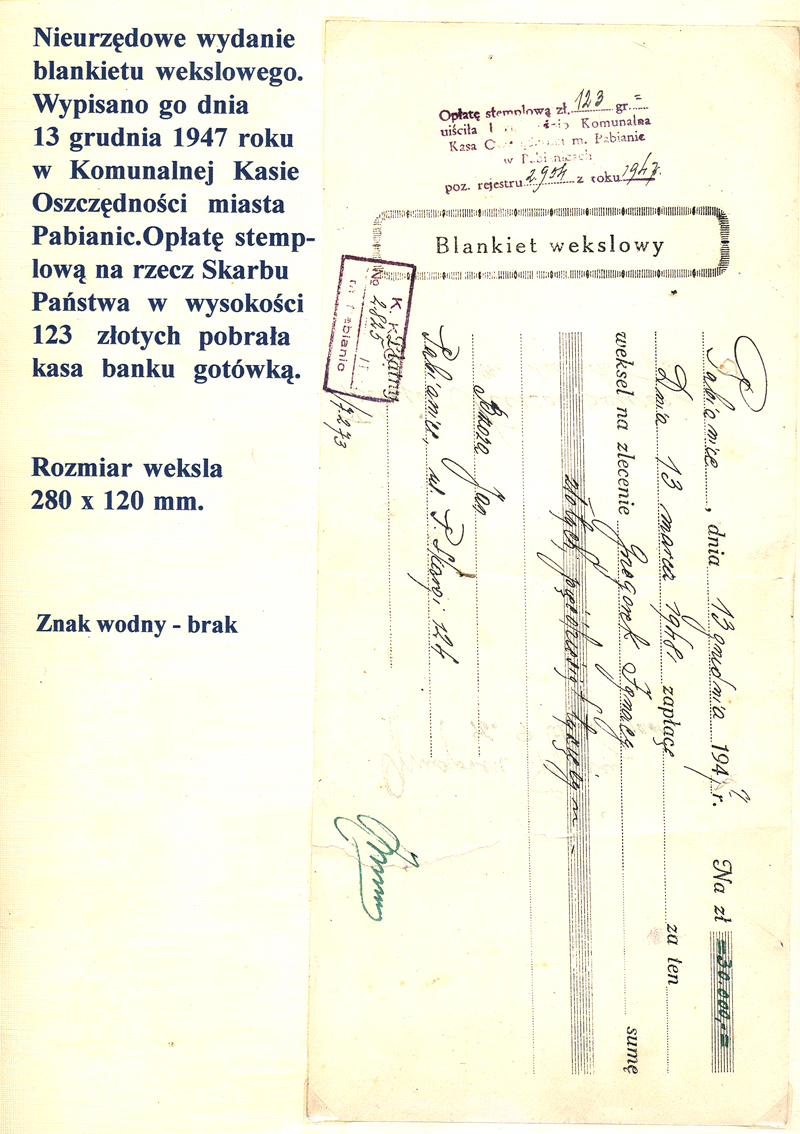 Nieurzędowe wydanie
blankietu wekslowego.
Wypisano go dnia
13 grudnia 1947 roku
w Komunalnej Kasie
Oszczędności miasta
Pabianic.Opłatę stemp-
lową na rzecz Skarbu
Państwa w wysokości
123 złotych pobrała
kasa banku gotówką.
Rozmiar weksla
280 x 120 mm.
Znak wodny - brak
Opłatę stemplową zł. 123 gr =
uiściła Komunalna
Kasa m. Pabianic
w Pabianicach
poz. rejestru 2954 z roku 1947.
Blankiet wekslowy
Pabianice, dnia 13 grudnia 1947 r. Na zł =30.000,-=
Dnia 13 marca 1948. zapłacę za ten
weksel na zlecenie Grzegorek Ignacy sumę
złotych
Jan
Pabianice, ul. P. Skargi 124
Płatny
K. K.
No 2825
17273